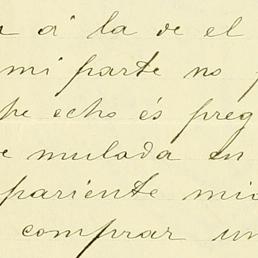 á la de el
mi parte no
he echo és preg
mulada en
pariente mio
comprar un